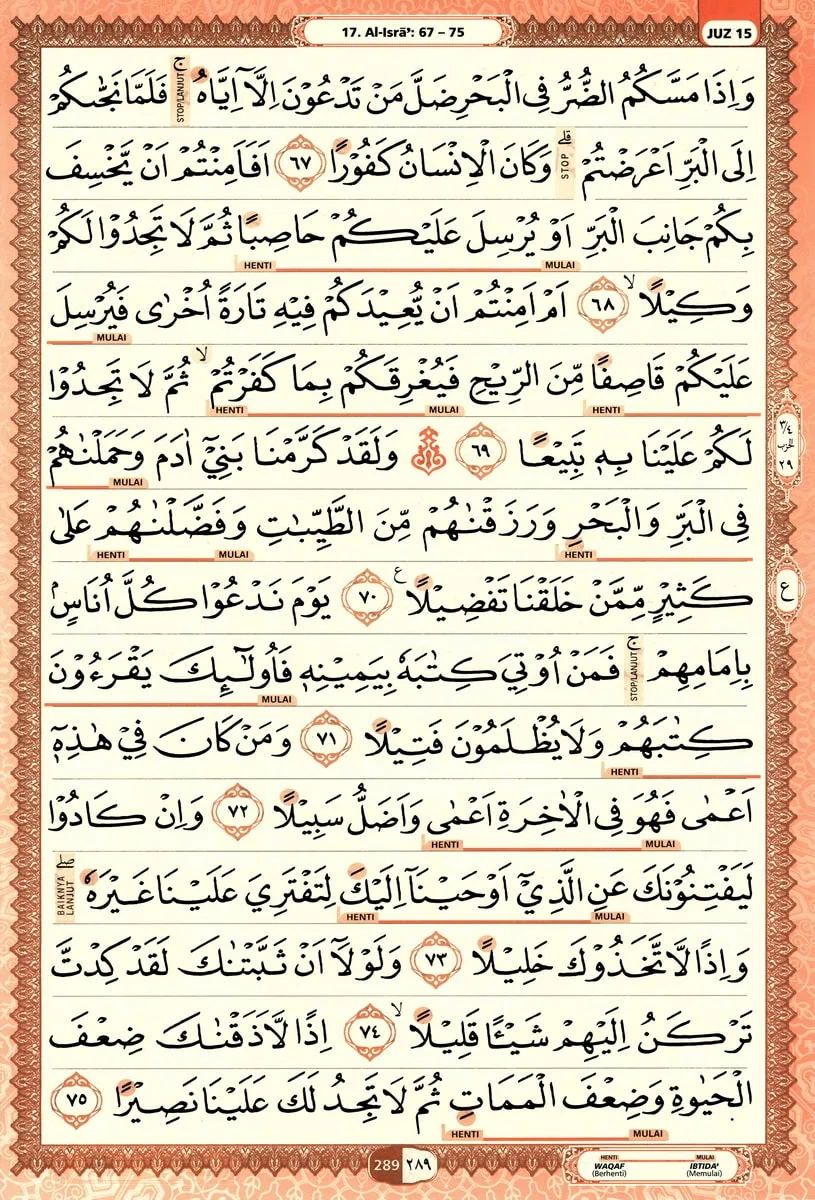 17. Al-Isrā': 67 – 75
JUZ 15
وَاِذَا مَسَّكُمُ الضُّرُّ فِى الْبَحْرِ ضَلَّ مَنْ تَدْعُوْنَ اِلَّآ اِيَّاهُ ۚ فَلَمَّا نَجّٰىكُمْ
STOP/LANJUT
اِلَى الْبَرِّ اَعْرَضْتُمْ ۗ وَكَانَ الْاِنْسَانُ كَفُوْرًا ٦٧ اَفَاَمِنْتُمْ اَنْ يَّخْسِفَ
STOP
بِكُمْ جَانِبَ الْبَرِّ اَوْ يُرْسِلَ عَلَيْكُمْ حَاصِبًا ثُمَّ لَا تَجِدُوْا لَكُمْ
HENTI MULAI
وَكِيْلًا ۙ ٦٨ اَمْ اَمِنْتُمْ اَنْ يُّعِيْدَكُمْ فِيْهِ تَارَةً اُخْرٰى فَيُرْسِلَ
MULAI
عَلَيْكُمْ قَاصِفًا مِّنَ الرِّيْحِ فَيُغْرِقَكُمْ بِمَا كَفَرْتُمْ ۙ ثُمَّ لَا تَجِدُوْا
HENTI MULAI HENTI
لَكُمْ عَلَيْنَا بِهٖ تَبِيْعًا ٦٩ ۞ وَلَقَدْ كَرَّمْنَا بَنِيْٓ اٰدَمَ وَحَمَلْنٰهُمْ
MULAI
٣/٤
الحزب
٢٩
فِى الْبَرِّ وَالْبَحْرِ وَرَزَقْنٰهُمْ مِّنَ الطَّيِّبٰتِ وَفَضَّلْنٰهُمْ عَلٰى
HENTI MULAI HENTI
ع
كَثِيْرٍ مِّمَّنْ خَلَقْنَا تَفْضِيْلًا ࣖ ٧٠ يَوْمَ نَدْعُوْا كُلَّ اُنَاسٍۢ
بِاِمَامِهِمْ ۚ فَمَنْ اُوْتِيَ كِتٰبَهٗ بِيَمِيْنِهٖ فَاُولٰۤىِٕكَ يَقْرَءُوْنَ
STOP/LANJUT
MULAI
كِتٰبَهُمْ وَلَا يُظْلَمُوْنَ فَتِيْلًا ٧١ وَمَنْ كَانَ فِيْ هٰذِهٖٓ
HENTI
اَعْمٰى فَهُوَ فِى الْاٰخِرَةِ اَعْمٰى وَاَضَلُّ سَبِيْلًا ٧٢ وَاِنْ كَادُوْا
HENTI MULAI
لَيَفْتِنُوْنَكَ عَنِ الَّذِيْٓ اَوْحَيْنَآ اِلَيْكَ لِتَفْتَرِيَ عَلَيْنَا غَيْرَهٗ ۖ
BAIKNYA LANJUT
HENTI MULAI
وَاِذًا لَّاتَّخَذُوْكَ خَلِيْلًا ٧٣ وَلَوْلَآ اَنْ ثَبَّتْنٰكَ لَقَدْ كِدْتَّ
تَرْكَنُ اِلَيْهِمْ شَيْـًٔا قَلِيْلًا ۙ ٧٤ اِذًا لَّاَذَقْنٰكَ ضِعْفَ
الْحَيٰوةِ وَضِعْفَ الْمَمَاتِ ثُمَّ لَا تَجِدُ لَكَ عَلَيْنَا نَصِيْرًا ٧٥
HENTI MULAI
289 ٢٨٩
HENTI MULAI
WAQAF IBTIDA'
(Berhenti) (Memulai)